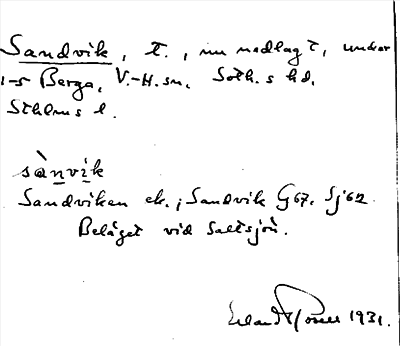 Sandvik, t., nu nedlagt, under
1-5 Berga, V.-H. sn. Soth.s hd.
Sthlms l.
sànvik
Sandviken ek.; Sandvik G 67. Sj 62
Beläget vid Saltsjön.
Erland Rosell 1931.